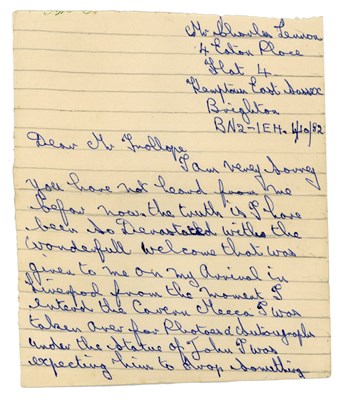 Mr Charles Lennon
4 Eaton Place
Flat 4
Kemptown East Sussex
Brighton
BN2-1EH. 4/10/82
Dear Mr Trollope
I am very Sorry
you have not heard from me
befor now. the truth is I have
been so Devastated with the
wonderfull welcome that was
given to me on my Arrival in
Liverpool from the moment I
enterd the Cavern Mecca I was
taken over for Photoes & Autographs
under the statue of John I was
expecting him to drop something